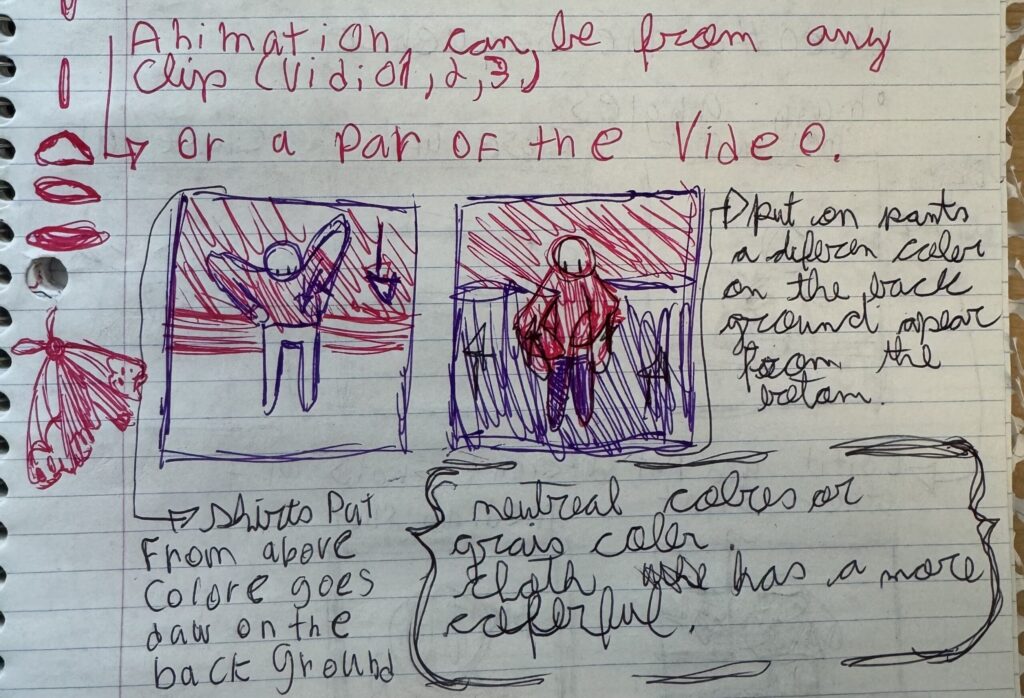 Animation can be from any
clip (vidio1,2,3.)
or a par of the video.
put on pants
a diferen color
on the back
ground apear
from the
botom.
shirts Put
From above
Colore goes
daw on the
back ground
neutreal colres or
grais coler.
cloth has a more
colerful.